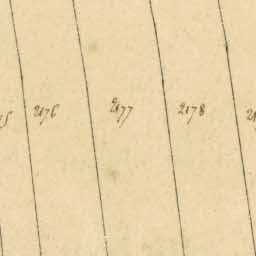 2176 2177 2178